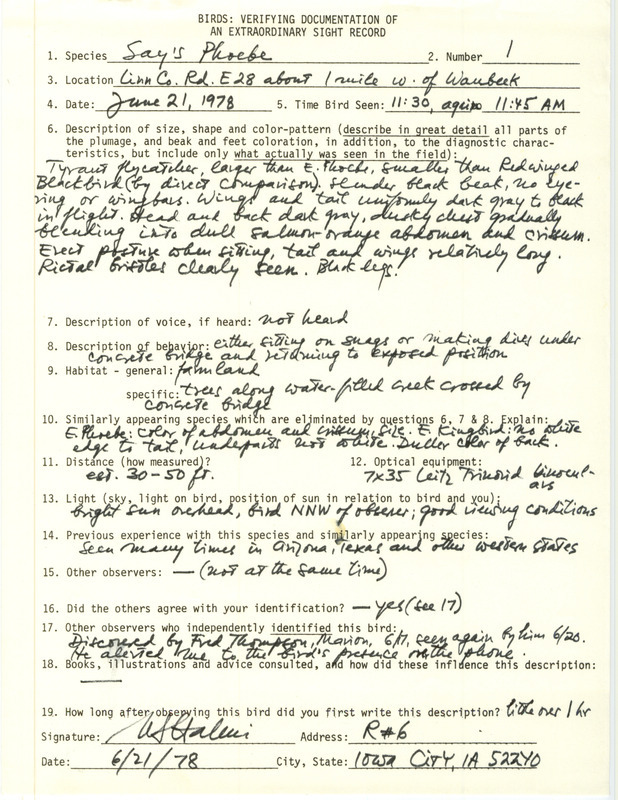 BIRDS: VERIFYING DOCUMENTATION OF
AN EXTRAORDINARY SIGHT RECORD
1. Species Say's Phoebe 2. Number 1
3. Location Linn Co. Rd. E28 about 1 mile w. of Waubeek
4. Date: June 21, 1978 5. Time Bird Seen: 11:30, again 11:45 AM
6. Description of size, shape and color-pattern (describe in great detail all parts of
the plumage, and beak and feet coloration, in addition, to the diagnostic charac-
teristics, but include only what actually was seen in the field):
Tyrant flycatcher, larger than E. Phoebe, smaller than Redwinged
Blackbird (by direct comparison). Slender black beak, no eye-
ring or wingbars. Wings and tail uniformly dark gray to black
in flight. Head and back dark gray, dusky chest gradually
blending into dull salmon-orange abdomen and crissum.
Erect posture when sitting, tail and wings relatively long.
Rictal bristles clearly seen. Black legs.
7. Description of voice, if heard: not heard
8. Description of behavior: either sitting on snags or making dives under
concrete bridge and returning to exposed position
9. Habitat - general: farmland
specific: trees along water-filled creek crossed by
concrete bridge
10. Similarly appearing species which are eliminated by questions 6, 7 & 8. Explain:
E. Phoebe: color of abdomen and crissum, size. E. Kingbird: no white
edge to tail, underparts not white. Duller color of back.
11. Distance (how measured)? 12. Optical equipment:
est. 30-50 ft. 7x35 Leitz Trinovid binocul-
ars
13. Light (sky, light on bird, position of sun in relation to bird and you):
bright sun overhead, bird NNW of observer; good viewing conditions
14. Previous experience with this species and similarly appearing species:
Seen many times in Arizona, Texas and other western states
15. Other observers: — (not at the same time)
16. Did the others agree with your identification? — yes (see 17)
17. Other observers who independently identified this bird:
Discovered by Fred Thompson, Marion, 6/17, seen again by him 6/20.
He alerted me to the bird's presence on the phone.
18. Books, illustrations and advice consulted, and how did these influence this description:
—
19. How long after observing this bird did you first write this description? little over 1 hr
Signature: Address: R#6
Date: 6/21/78 City, State: Iowa City, IA 52240